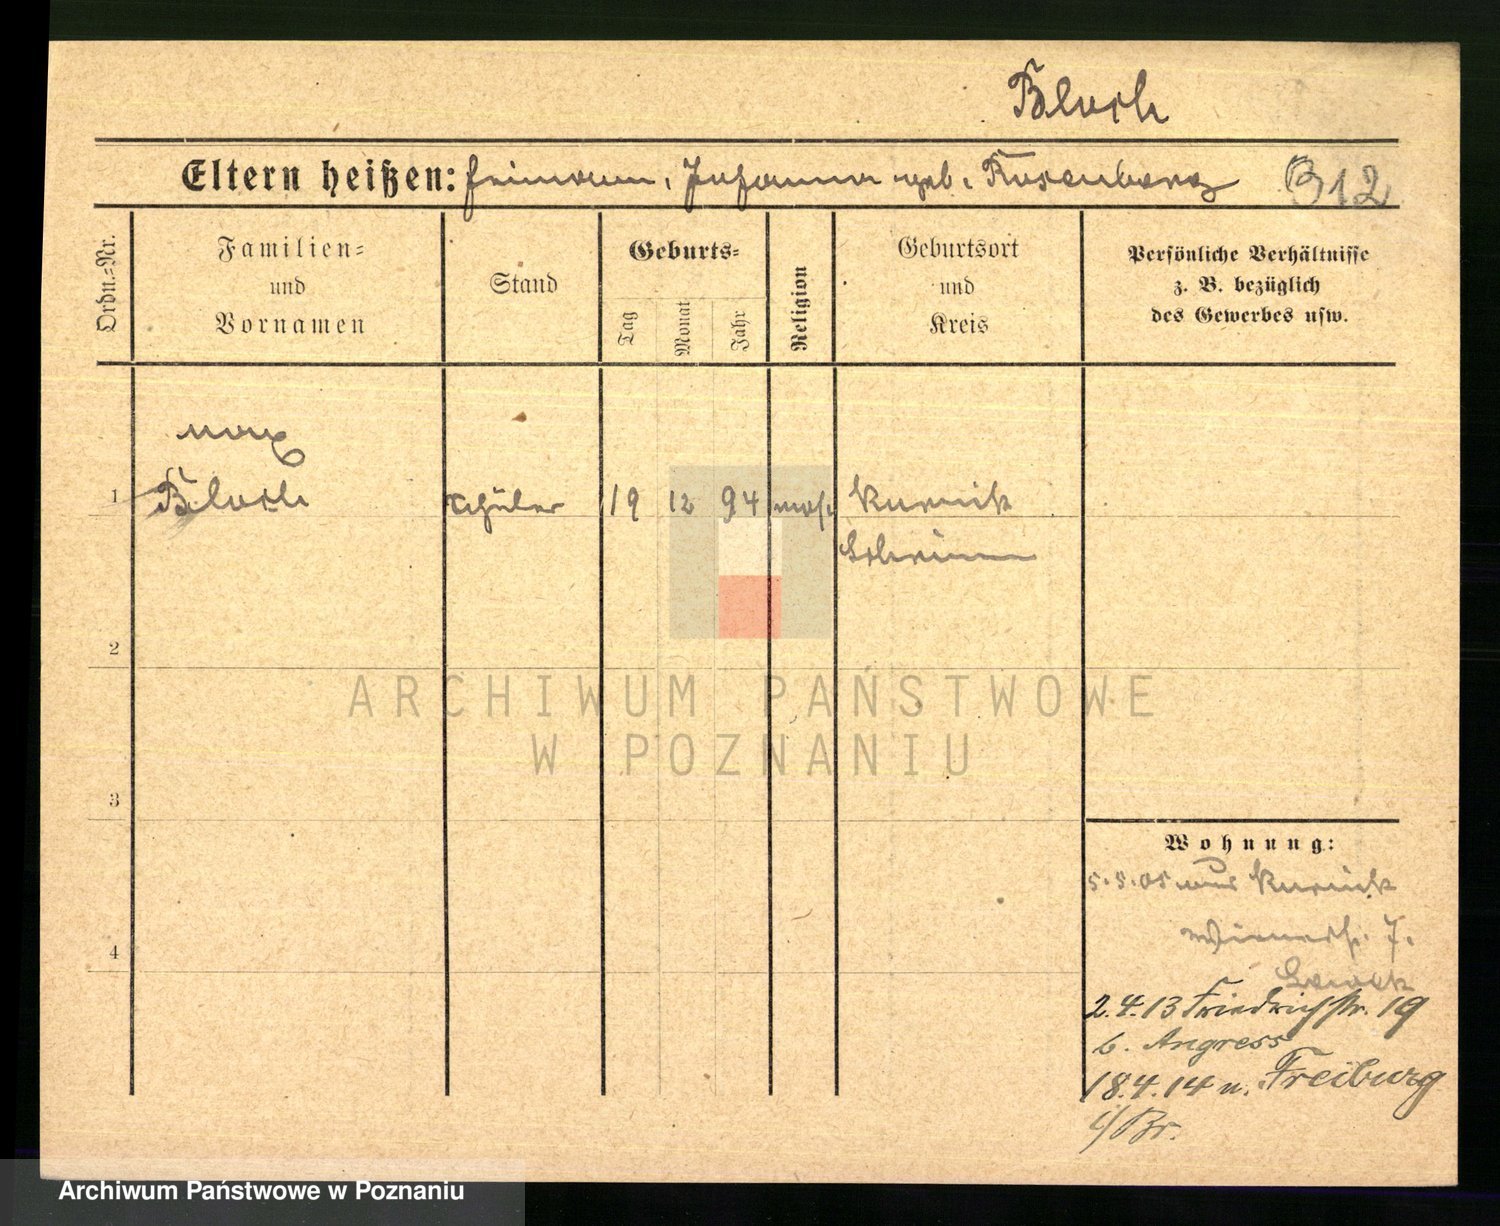 Bloch
Eltern heißen: Heimann, Johanna geb. Rosenberg B12
Ordn.-Nr.
Familien-
und
Vornamen
Stand
Geburts-
Tag
Monat
Jahr
Religion
Geburtsort
und
Kreis
Persönliche Verhältnisse
z. B. bezüglich
des Gewerbes usw.
Max
1 Bloch Schüler 19 12 94 mos. Kurnik
Schrimm
2
3
4
Wohnung:
5.5.05 aus Kurnik
Wienerstr. 7.
2.4.13 Friedrichstr. 19
b. Angress
18.4.14 n. Freiburg
i/Br.
ARCHIWUM PAŃSTWOWE
W POZNANIU
Archiwum Państwowe w Poznaniu